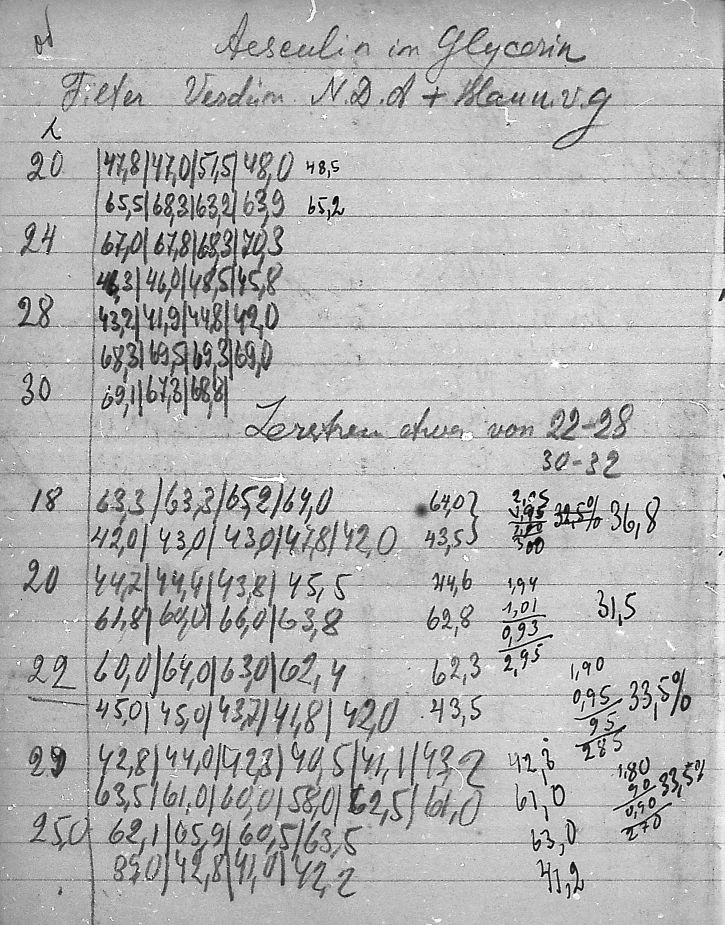 Aesculin in Glycerin
Filter Verdünn. N.D.A + Blau u.v.g
20 |47,8|47,0|51,5|48,0 48,5
65,5|68,3|63,2|63,9 65,2
24 67,0|67,8|68,3|70,3
|46,0|48,5|45,8
28 43,2|41,9|44,8|42,0
68,3|69,5|69,3|69,0
30 69,1|67,3|68,8|
etwa von 22-28
30-32
18 63,3|63,3|65,2|64,0 64,0} 36,8
42,0|43,0|43,0|47,8|42,0 43,5}
20 44,7|44,4|43,8|45,5 44,6 1,94
61,8|60,0|66,0|63,8 62,8 1,01 31,5
0,93
2,95
22 60,0|64,0|63,0|62,4 62,3 1,90
45,0|45,0|43,7|41,8|42,0 43,5 0,95 33,5%
95
285
42,8|44,0|42,3|40,5|41,1|43,2 1,80
63,5|61,0|60,0|58,0|62,5|61,0 61,0 90 33,5%
0,90
270
25,0 62,1|65,9|60,5|63,5 63,0
39,0|42,8|41,0|42,2 41,2